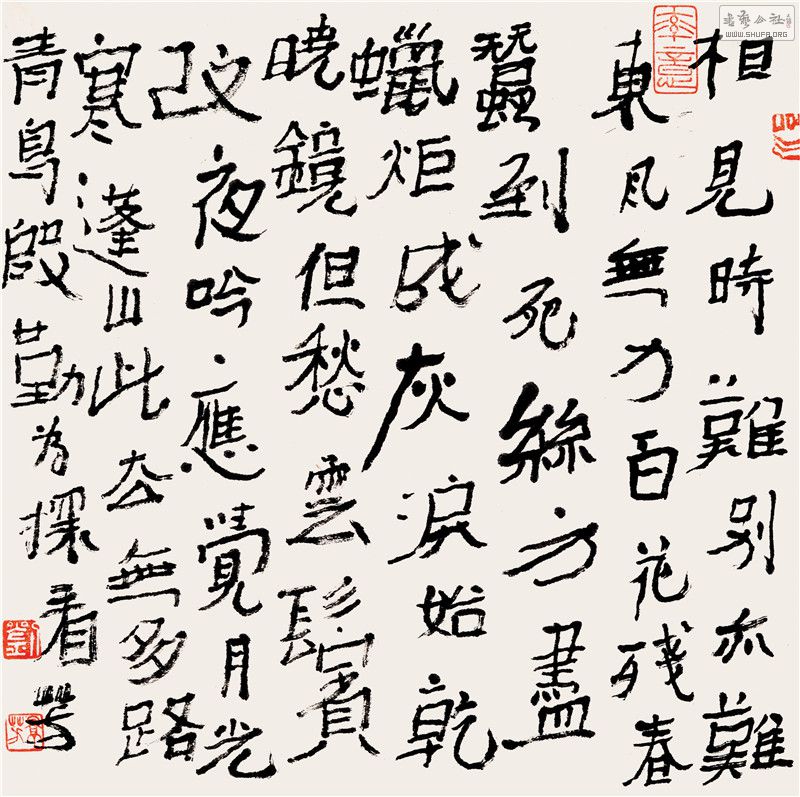 相見時難別亦難
東風無力百花殘春
蠶到死絲方盡
蠟炬成灰淚始乾
曉鏡但愁雲鬢
改夜吟應覺月光
寒蓬山此去無多路
青鳥殷勤為探看 芳
率意
劉
書藝公社
WWW.SHUFA.ORG